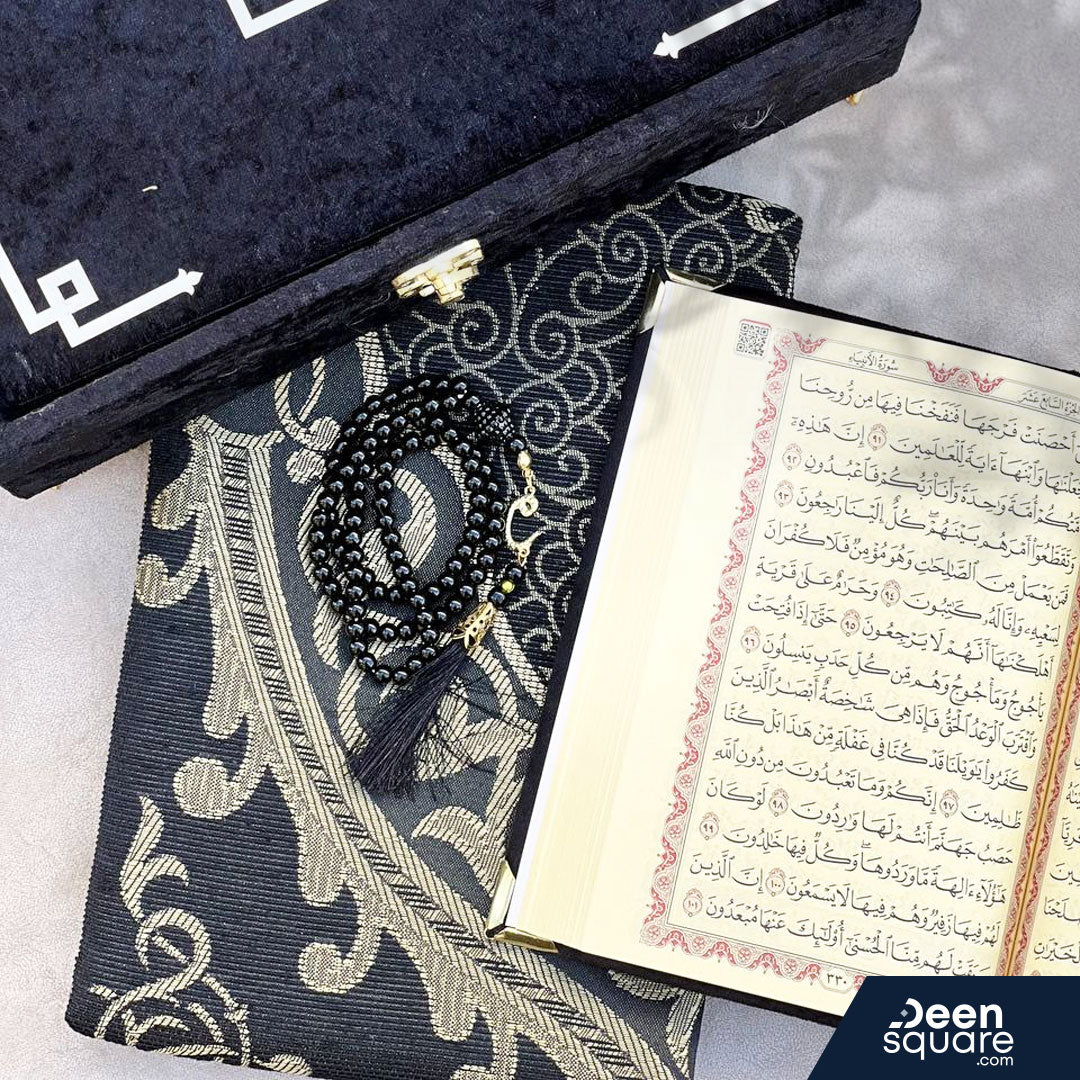 سُورَةُ الأَنبِيَاءِ
الجُزْءُ السَّابِعَ عَشَرَ
أَحْصَنَتْ فَرْجَهَا فَنَفَخْنَا فِيهَا مِن رُّوحِنَا
وَابْنَهَا ءَايَةً لِّلْعَالَمِينَ ٩١ إِنَّ هَٰذِهِ
أُمَّةً وَاحِدَةً وَأَنَا رَبُّكُمْ فَاعْبُدُونِ ٩٢
وَتَقَطَّعُوا أَمْرَهُم بَيْنَهُمْ كُلٌّ إِلَيْنَا رَاجِعُونَ ٩٣
فَمَن يَعْمَلْ مِنَ الصَّالِحَاتِ وَهُوَ مُؤْمِنٌ فَلَا كُفْرَانَ
لِسَعْيِهِ وَإِنَّا لَهُ كَاتِبُونَ ٩٤ وَحَرَامٌ عَلَىٰ قَرْيَةٍ
أَهْلَكْنَاهَا أَنَّهُمْ لَا يَرْجِعُونَ ٩٥ حَتَّىٰ إِذَا فُتِحَتْ
يَأْجُوجُ وَمَأْجُوجُ وَهُم مِّن كُلِّ حَدَبٍ يَنسِلُونَ ٩٦
وَاقْتَرَبَ الْوَعْدُ الْحَقُّ فَإِذَا هِيَ شَاخِصَةٌ أَبْصَارُ الَّذِينَ
كَفَرُوا يَا وَيْلَنَا قَدْ كُنَّا فِي غَفْلَةٍ مِّنْ هَٰذَا بَلْ كُنَّا
ظَالِمِينَ ٩٧ إِنَّكُمْ وَمَا تَعْبُدُونَ مِن دُونِ اللَّهِ
حَصَبُ جَهَنَّمَ أَنتُمْ لَهَا وَارِدُونَ ٩٨ لَوْ كَانَ
هَٰؤُلَاءِ ءَالِهَةً مَّا وَرَدُوهَا وَكُلٌّ فِيهَا خَالِدُونَ ٩٩
لَهُمْ فِيهَا زَفِيرٌ وَهُمْ فِيهَا لَا يَسْمَعُونَ ١٠٠ إِنَّ الَّذِينَ
سَبَقَتْ لَهُم مِّنَّا الْحُسْنَىٰ أُولَٰئِكَ عَنْهَا مُبْعَدُونَ ١٠١
٣٣٠
Deen
square
.com